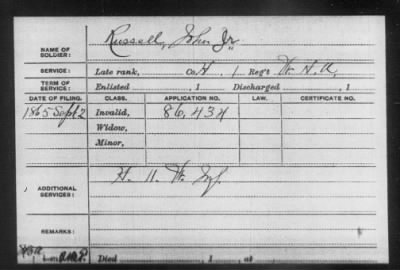 NAME OF SOLDIER: Russell, John Jr.
SERVICE: Late rank, Co. H, 1 Reg't W. H. A.
TERM OF SERVICE: Enlisted , 1 Discharged , 1
DATE OF FILING. CLASS. APPLICATION NO. LAW. CERTIFICATE NO.
1865 Sept 2 Invalid, 86,434
Widow,
Minor,
ADDITIONAL SERVICES: H. 11. W. Inf.
REMARKS:
Died , 1 , at